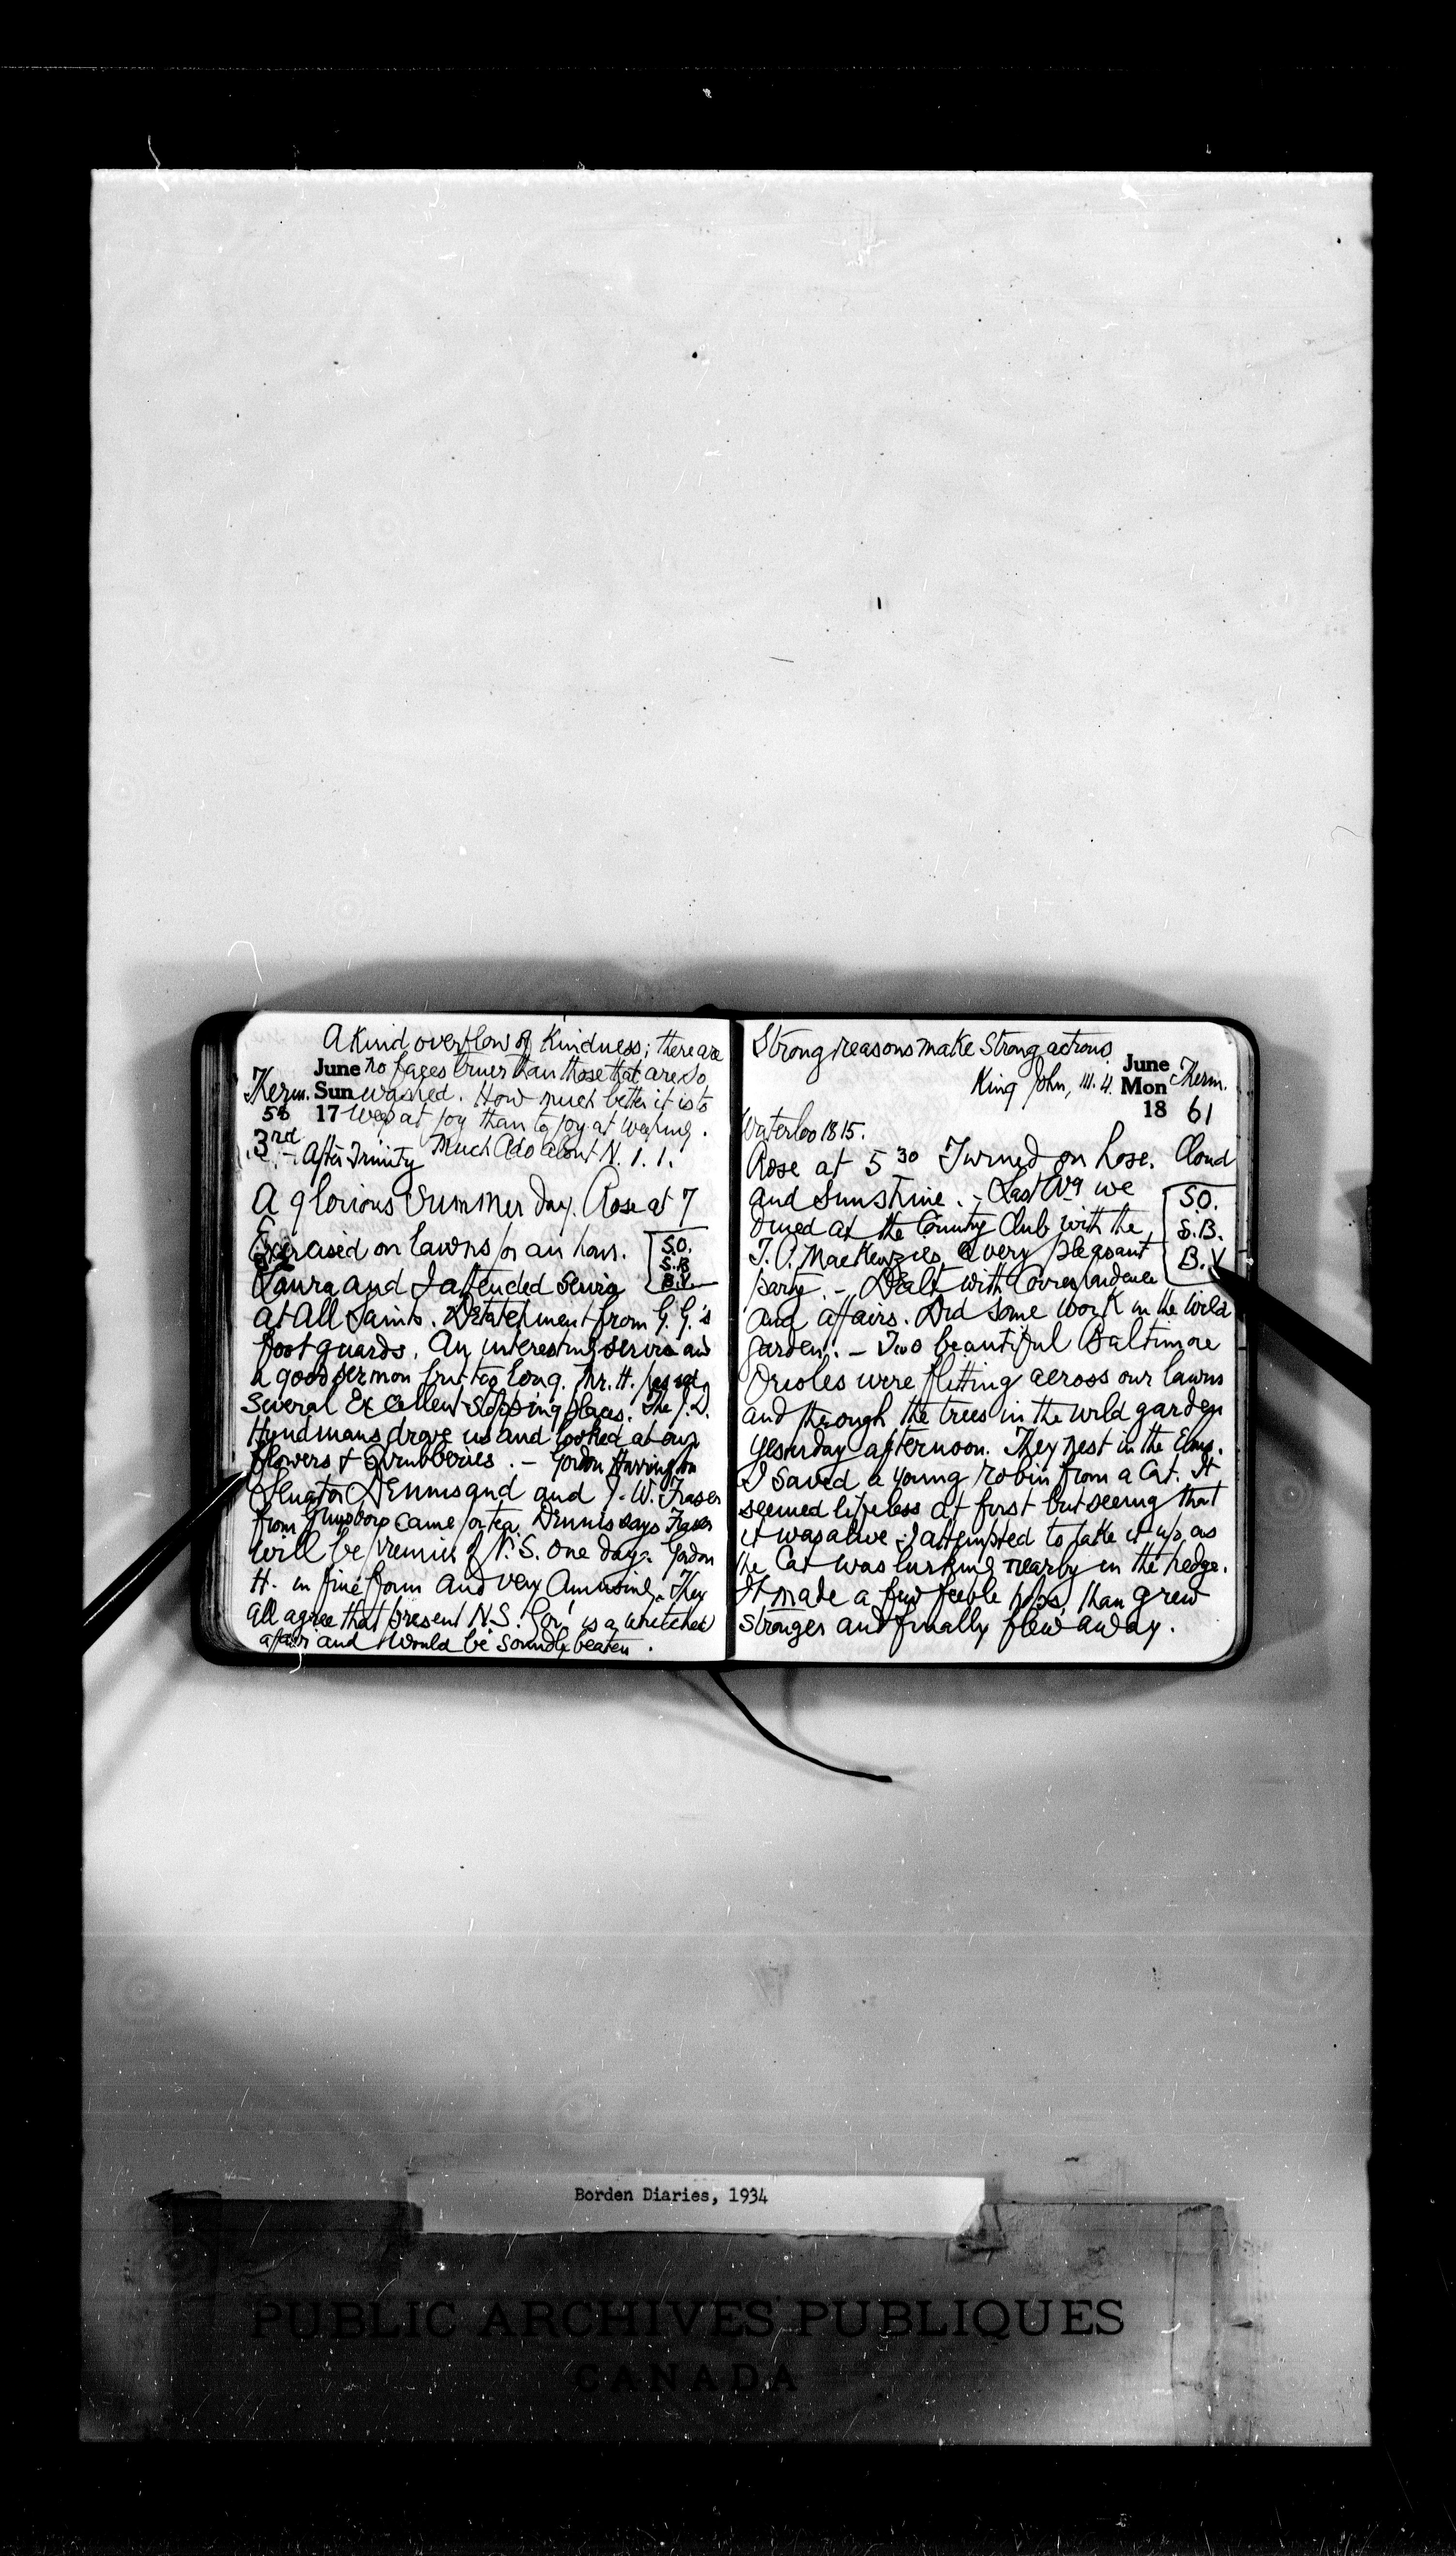 A kind overflow of kindness; there are
June no faces truer than those that are so
Therm. Sun washed. How much better it is to
58 17 weep at joy than to joy at weeping.
3rd - After Trinity Much Ado about N. 1. 1.
A glorious Summer day. Rose at 7
Exercised on lawns for an hour.
S.O.
S.B.
B.V.
Laura and I attended service
at All Saints. Detatchment from G.G.'s
foot guards. An interesting service and
a good sermon but too long. Mr. H. passed
several excellent stopping places. The J.D.
Hyndmans drove us and looked at our
flowers & shrubberies. - Gordon Harrington
Senator Dennis and and J. W. Fraser
from came for tea. Dennis says Fraser
will be premier of N.S. one day. Gordon
H. in fine form and very Amusing. They
all agree that present N.S. Gov' is a wretched
affair and would be soundly beaten.
Strong reasons make Strong actions
King John, III. 4.
June
Mon
18
Therm.
61
Waterloo 1815.
Rose at 5 30 Turned on hose. Cloud
and Sunshine. - Last Evg we
S.O.
S.B.
B.V
dined at the Country Club with the
J.P. MacKenzies a very pleasant
party. - Dealt with Correspondence
and affairs. Did some work in the wild
garden. - Two beautiful Baltimore
Orioles were flitting across our lawns
and through the trees in the wild garden
yesterday afternoon. They nest in the Elms.
I saved a young robin from a Cat. It
seemed lifeless at first but seeing that
it was alive I attempted to take it up, as
the Cat was lurking nearby in the hedge.
It made a few feeble hops, than grew
stronger and finally flew away.
Borden Diaries, 1934
PUBLIC ARCHIVES PUBLIQUES
CANADA